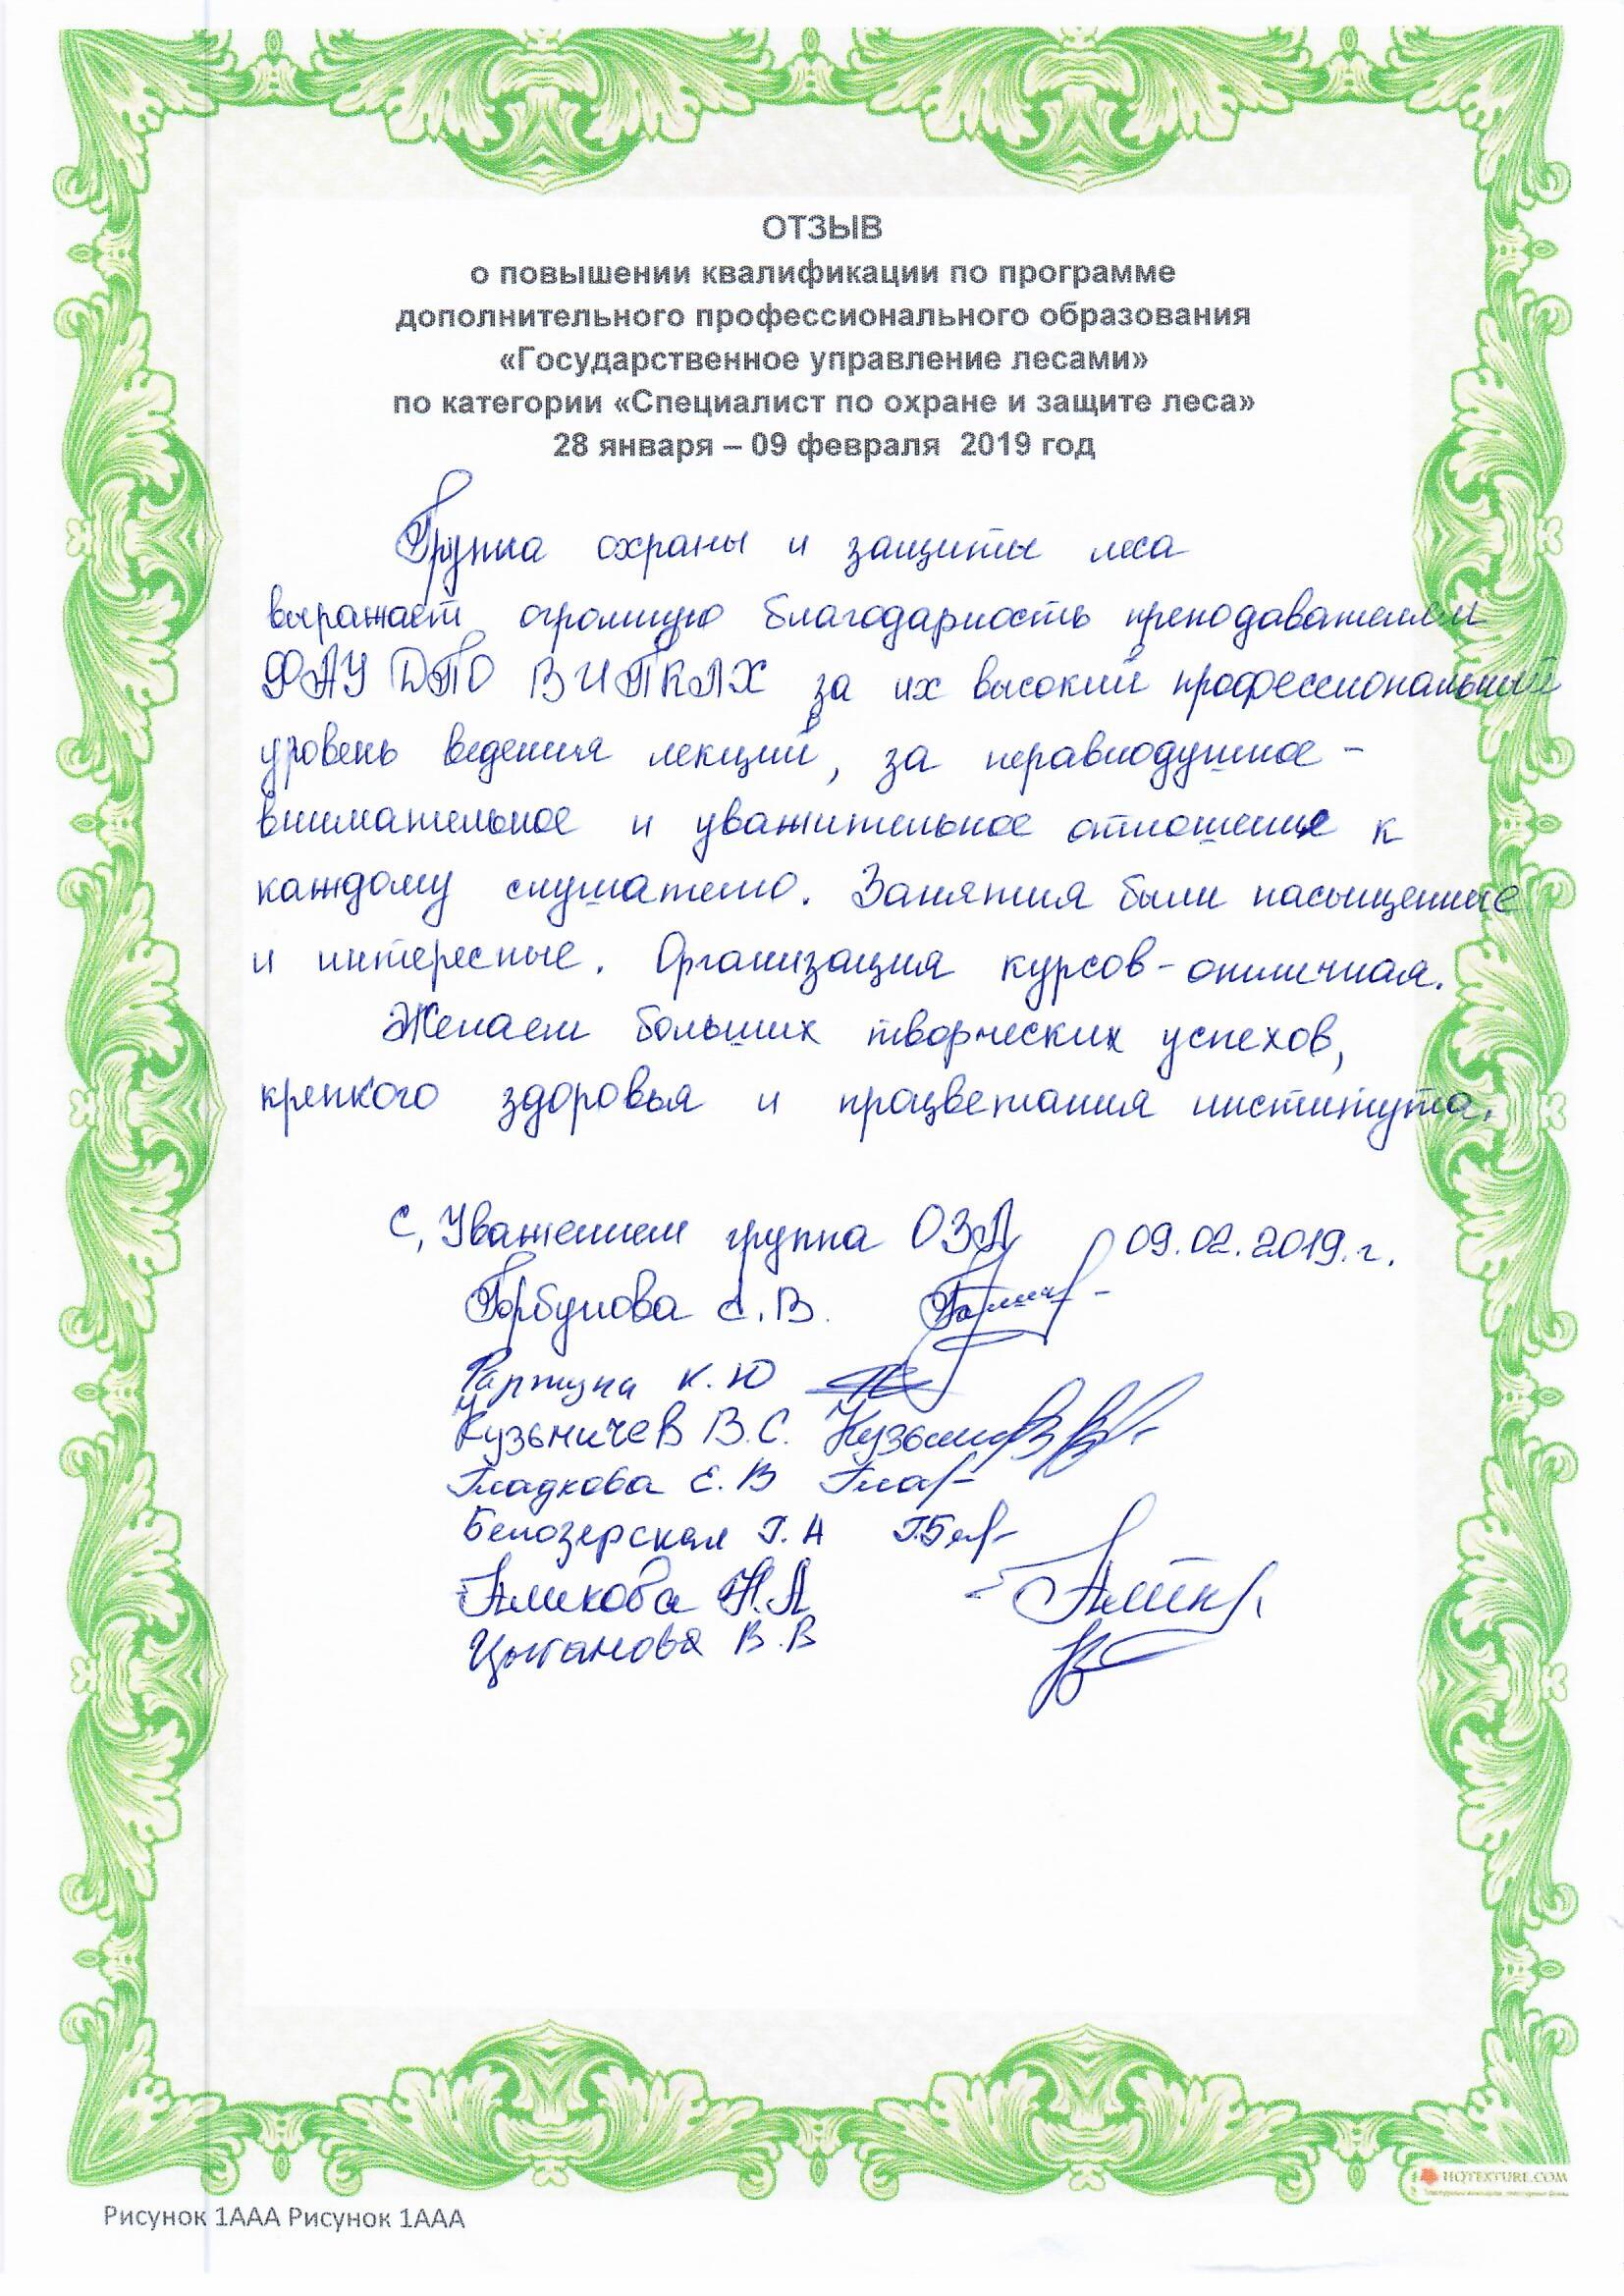 ОТЗЫВ
о повышении квалификации по программе
дополнительного профессионального образования
«Государственное управление лесами»
по категории «Специалист по охране и защите леса»
28 января – 09 февраля 2019 год
Группа охраны и защиты леса
выражает огромную благодарность преподавателям
ФАУ ДПО ВИПКЛХ за их высокий профессиональный
уровень ведения лекций, за неравнодушное -
внимательное и уважительное отношение к
каждому слушателю. Занятия были насыщенные
и интересные. Организация курсов - отличная.
Желаем больших творческих успехов,
крепкого здоровья и процветания института.
С, Уважением группа ОЗЛ 09.02.2019.г.
Горбунова С.В.
К.Ю
Кузьмичев В.С.
Гладкова Е.В
Белозерская Г.А
Аликова Н.А
Цыганова В.В
HQTEXTURE.COM
Рисунок 1ААА Рисунок 1ААА